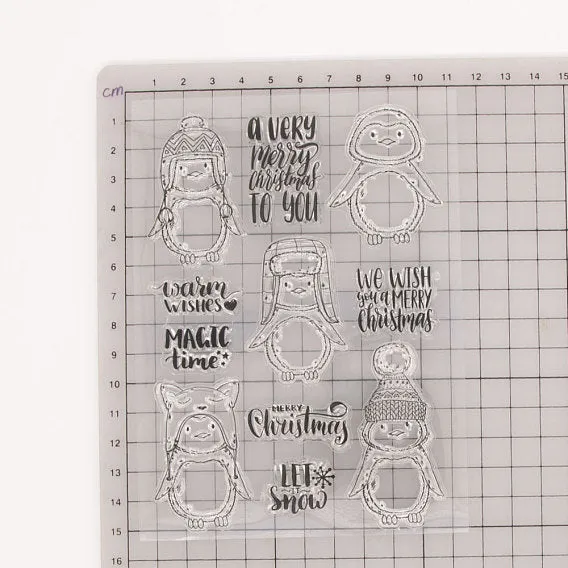 cm
1 2 3 4 5 6 7 8 9 10 11 12 13 14 15
1
2
3
4
5
6
7
8
9
10
11
12
13
14
15
16
a very
merry
christmas
TO YOU
warm
WISHES
We WISH
you a MERRY
Christmas
MAGIC
time
MERRY
Christmas
LET
IT
Snow